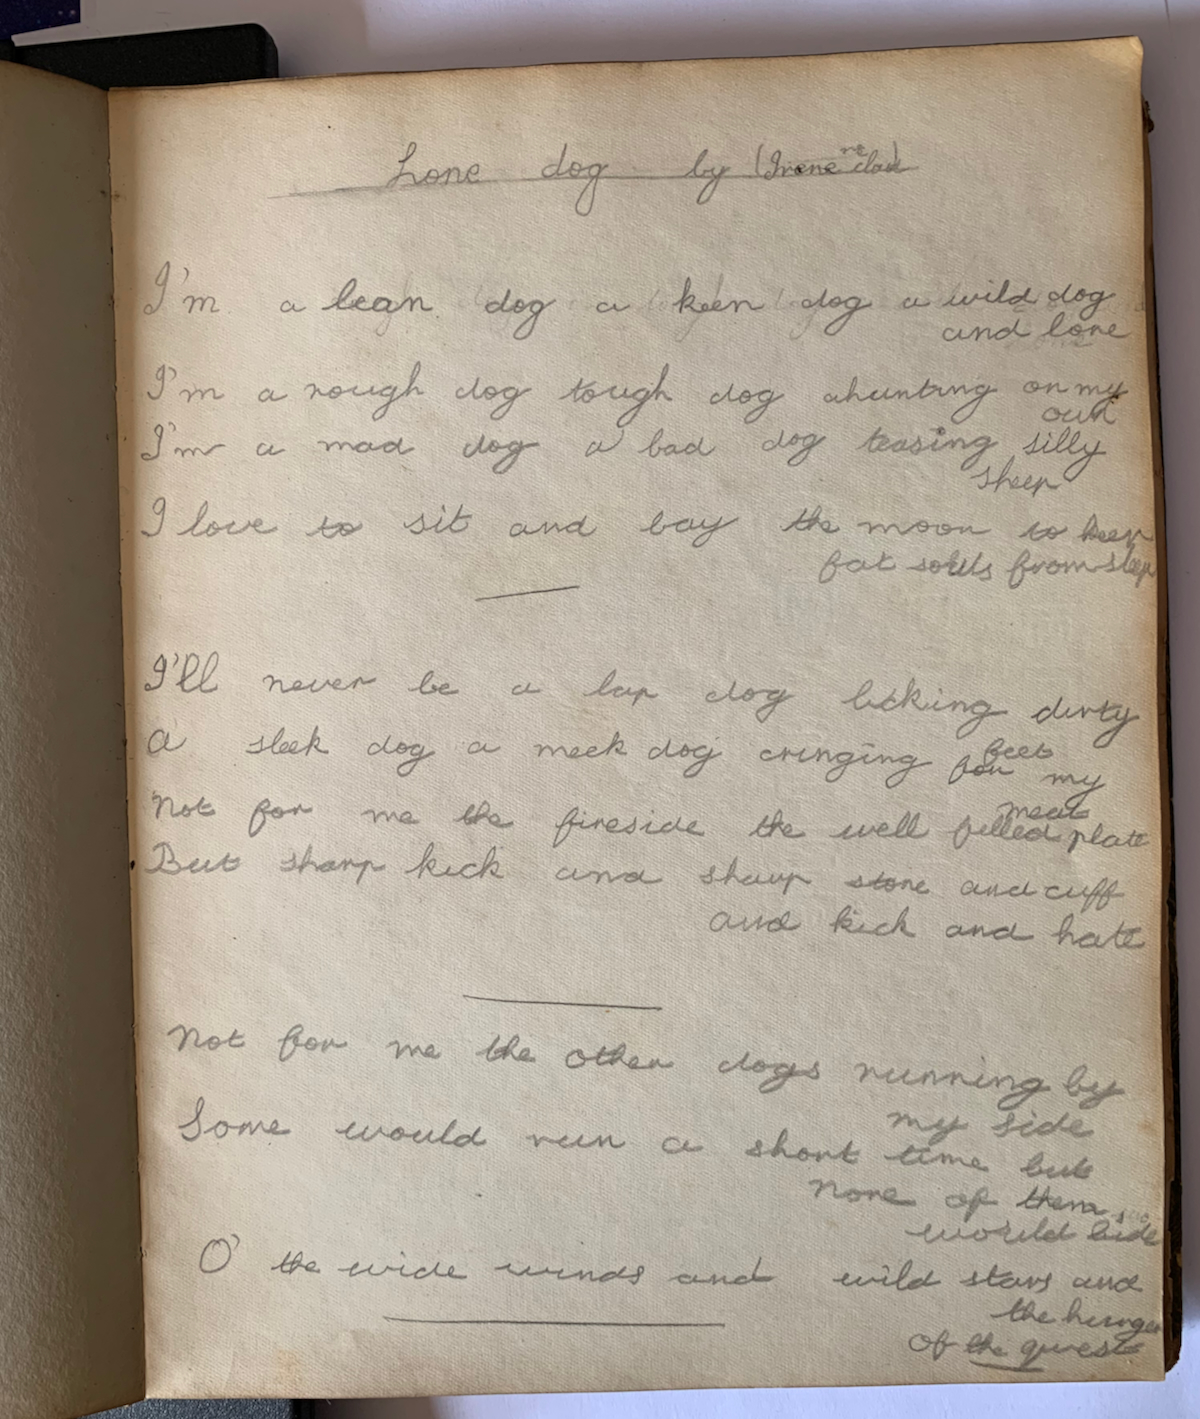 Lone dog by (Irene Mc clod)
I'm a lean dog a keen dog a wild dog
and lone
I'm a rough dog tough dog ahunting on my
own
I'm a mad dog a bad dog teasing silly
sheep
I love to sit and bay the moon to keep
fat souls from sleep
I'll never be a lap dog licking dirty
feet
A sleek dog a meek dog cringing for my
meat
Not for me the fireside the well filled plate
But sharp kick and sharp stone and cuff
and kick and hate
Not for me the other dogs running by
my side
Some would run a short time but
none of them
would bide
O' the wide winds and wild stars and
the hunger
of the quest